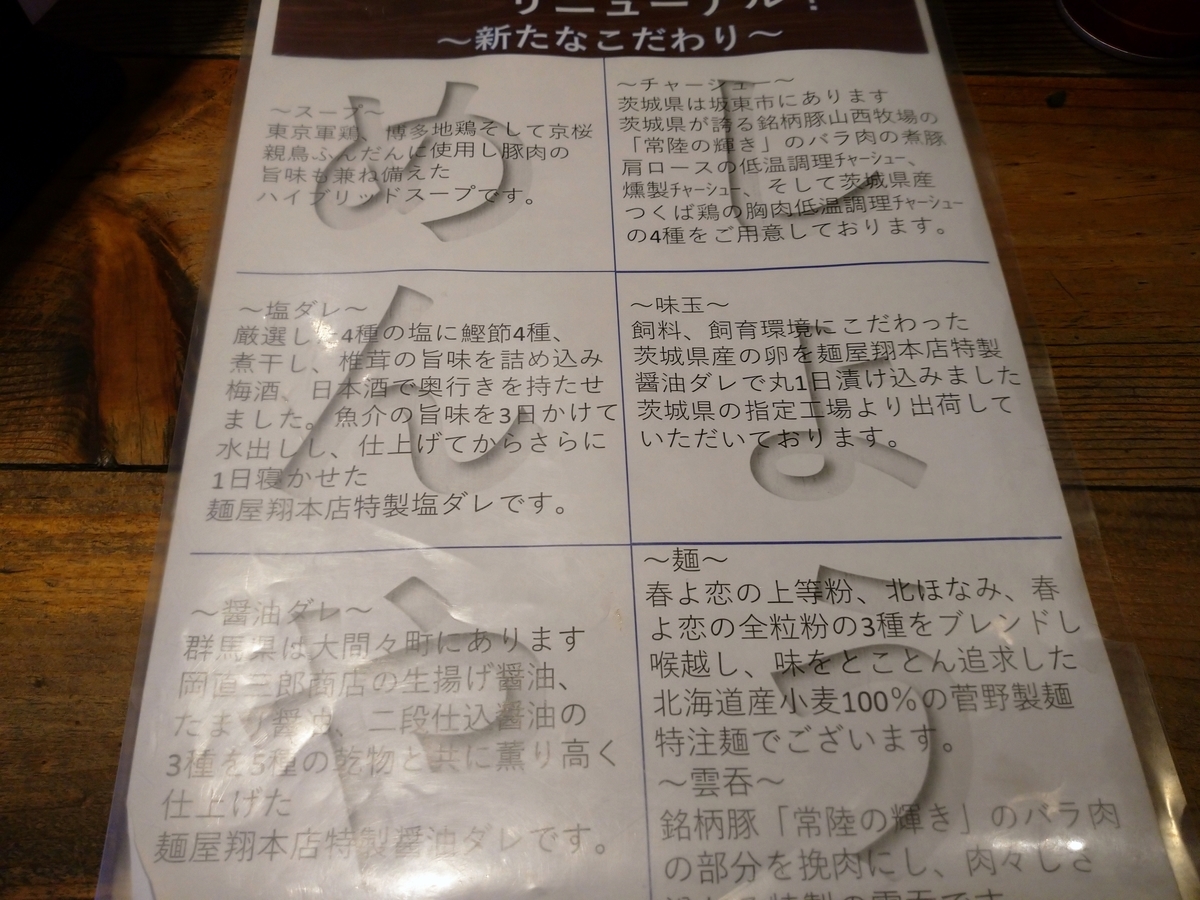 リニューアル！
～新たなこだわり～
～スープ～
東京軍鶏、博多地鶏そして京桜
親鳥ふんだんに使用し豚肉の
旨味も兼ね備えた
ハイブリッドスープです。
～チャーシュー～
茨城県は坂東市にあります
茨城県が誇る銘柄豚山西牧場の
「常陸の輝き」のバラ肉の煮豚
肩ロースの低温調理ﾁｬｰｼｭｰ、
燻製ﾁｬｰｼｭｰ、そして茨城県産
つくば鶏の胸肉低温調理ﾁｬｰｼｭｰ
の4種をご用意しております。
～塩ダレ～
厳選した4種の塩に鰹節4種、
煮干し、椎茸の旨味を詰め込み
梅酒、日本酒で奥行きを持たせ
ました。魚介の旨味を3日かけて
水出しし、仕上げてからさらに
1日寝かせた
麺屋翔本店特製塩ダレです。
～味玉～
飼料、飼育環境にこだわった
茨城県産の卵を麺屋翔本店特製
醤油ダレで丸1日漬け込みました
茨城県の指定工場より出荷して
いただいております。
～醤油ダレ～
群馬県は大間々町にあります
岡直三郎商店の生揚げ醤油、
たまり醤油、二段仕込醤油の
3種を5種の乾物と共に薫り高く
仕上げた
麺屋翔本店特製醤油ダレです。
～麺～
春よ恋の上等粉、北ほなみ、春
よ恋の全粒粉の3種をブレンドし
喉越し、味をとことん追求した
北海道産小麦100％の菅野製麺
特注麺でございます。
～雲呑～
銘柄豚「常陸の輝き」のバラ肉
の部分を挽肉にし、肉々しさ
め
ん
や
し
ょ
う